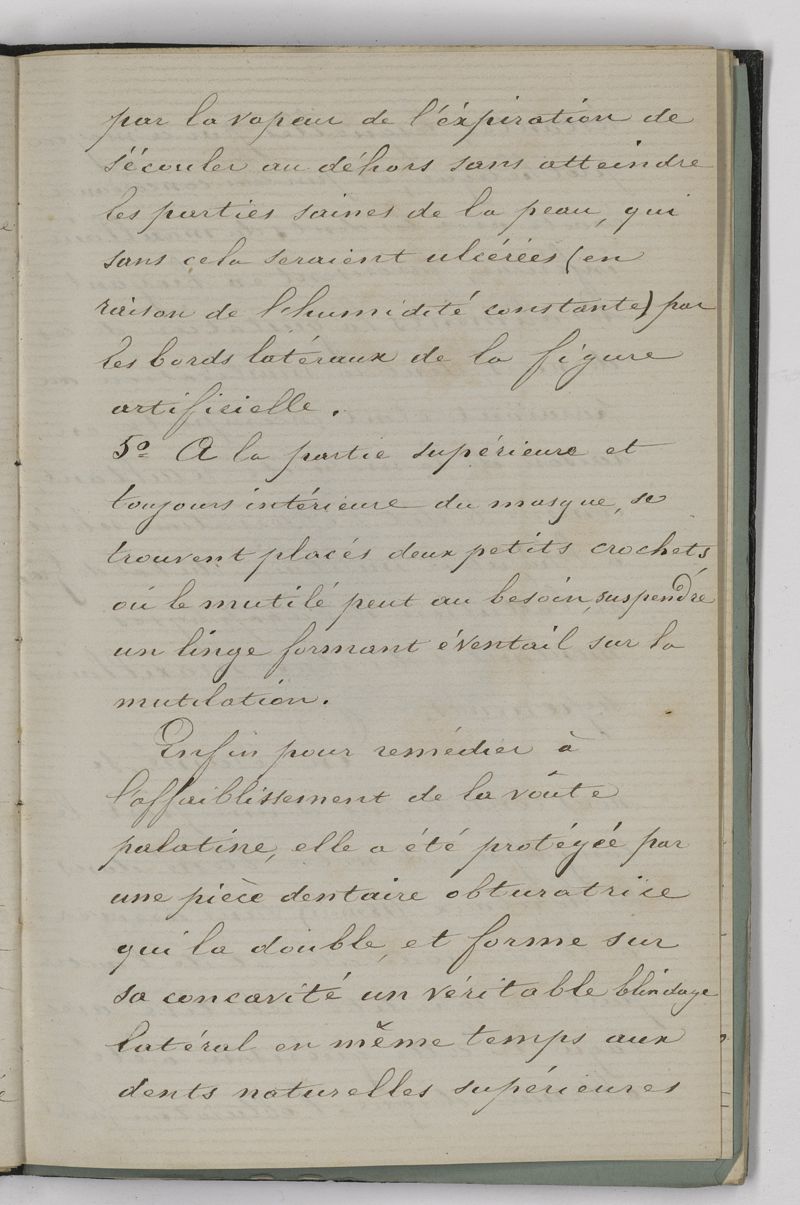 par la vapeur de l'éxpiration de
s'écouler au déhors sans atteindre
les parties saines de la peau, qui
sans cela seraient ulcérées (en
raison de l'humidité constante) par
les bords latéraux de la figure
artificielle.
5º A la partie supérieure et
toujours intérieure du masque, se
trouvent placés deux petits crochets
où le mutilé peut au besoin, suspendre
un linge formant éventail sur la
mutilation.
Enfin pour remédier à
l'affaiblissement de la voûte
palatine, elle a été protégée par
une pièce dentaire obturatrice
qui la double, et forme sur
sa concavité un véritable blindage
latéral en même temps aux
dents naturelles supérieures